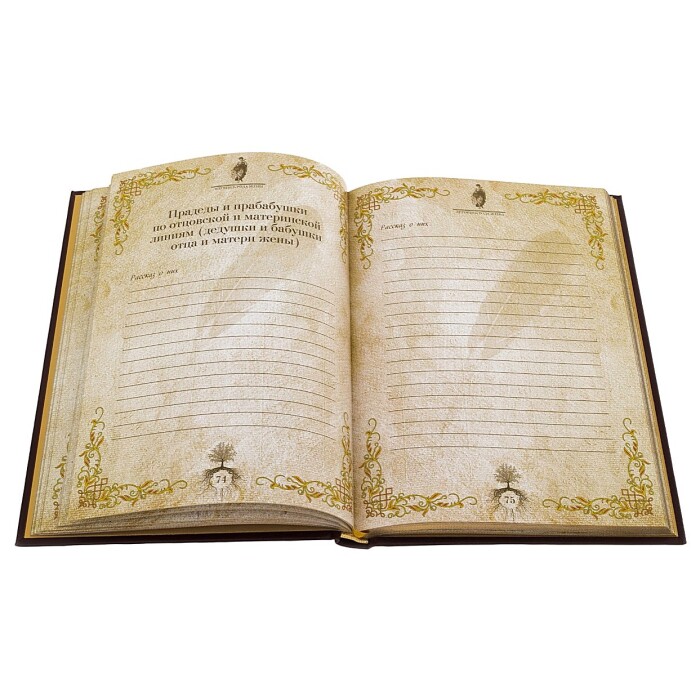 Прадеды и прабабушки
по отцовской и материнской
линиям (дедушки и бабушки
отца и матери жены)
Рассказ о них
74
Рассказ о них
75